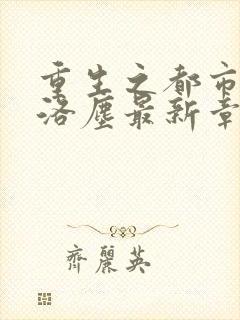 重生之都市
洛塵最新章
齊麗英